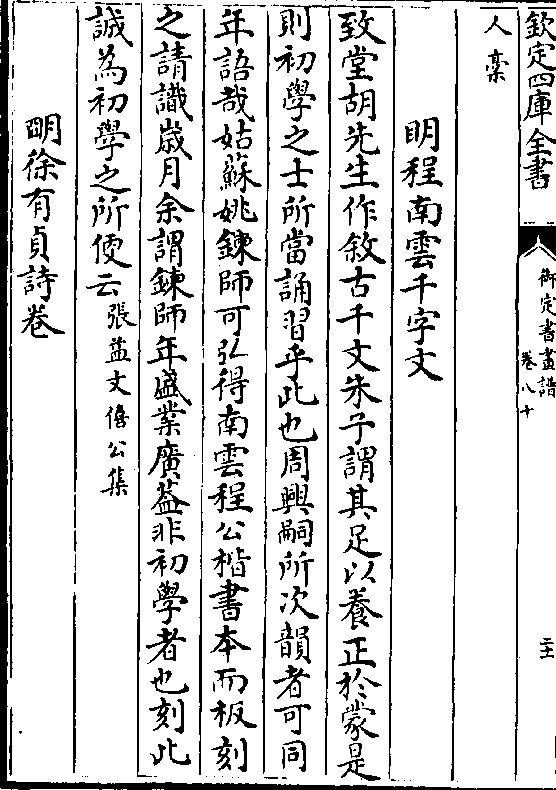 欽定四庫全書
御定書畫譜
卷八十
二十一
人稾
明程南雲千字文
致堂胡先生作敘古千文朱子謂其足以養正於蒙是
則初學之士所當誦習乎此也周興嗣所次韻者可同
年語哉姑蘇姚鍊師可弘得南雲程公楷書本而板刻
之請識歲月余謂鍊師年盛業廣葢非初學者也刻此
誠為初學之所使云張益文僖公集
明徐有貞詩卷